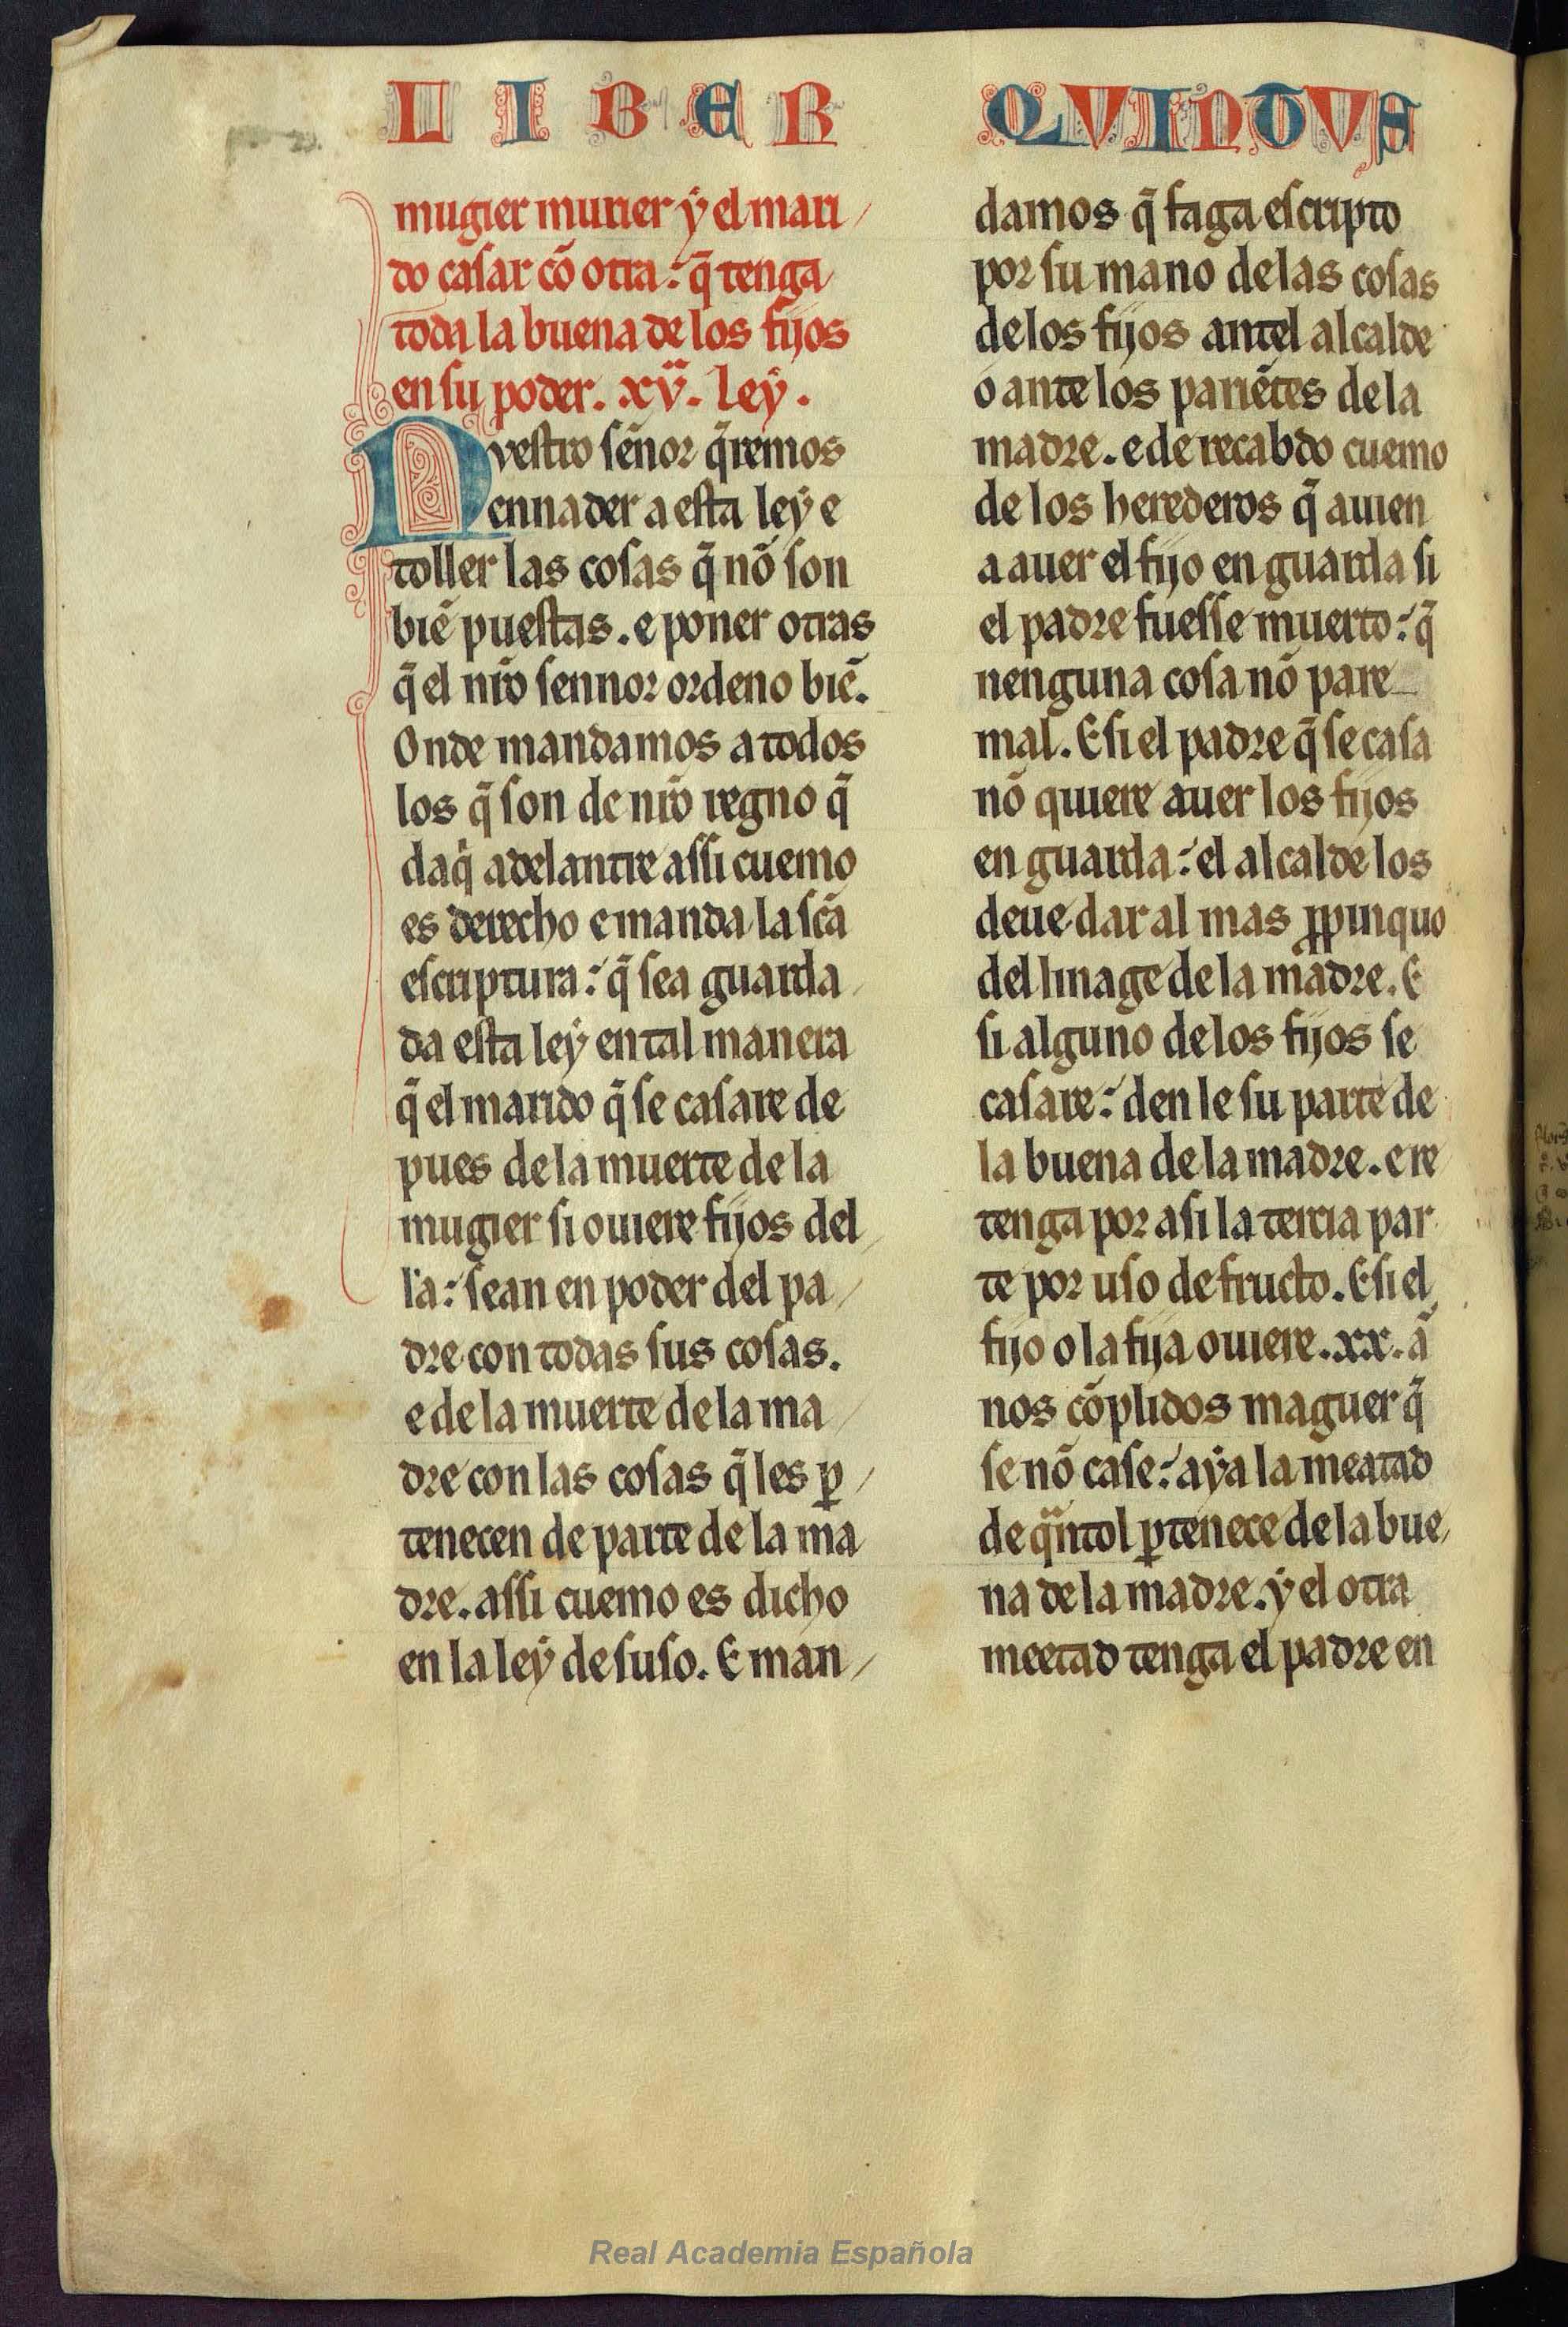 LIBER QUINTUS
mugier murier ẏ el mari /
do casar cõ otra: q̃ tenga
toda la buena de los fijos
en su poder. xvᵃ. leẏ.
Nvestro sẽnor q̃remos
ennader a esta leẏ e
toller las cosas q̃ nõ son
biẽ puestas. e poner otras
q̃ el nr̃o sennor ordeno biẽ.
Onde mandamos a todos
los q̃ son de nr̃o regno q̃
daqͥ adelantre assi cuemo
es derecho e manda la sc̃a
escriptura: q̃ sea guarda
da esta leẏ en tal manera
q̃ el marido q̃ se casare de
pues de la muerte de la
mugier si ouiere fijos del /
la: sean en poder del pa /
dre con todas sus cosas.
e de la muerte de la ma /
dre con las cosas q̃ les ꝑ /
tenecen de parte de la ma
dre. assi cuemo es dicho
en la leẏ de suso. E man /
damos q̃ faga escripto
por su mano de las cosas
de los fijos antel alcalde
o ante los pariẽtes de la
madre. e de recabdo cuemo
de los herederos q̃ auien
a auer el fijo en guarda si
el padre fuesse muerto: q̃
nenguna cosa nõ pare
mal. E si el padre q̃ se casa
nõ quiere auer los fijos
en guarda: el alcalde los
deue dar al mas ꝓpinquo
del linage de la madre. E
si alguno de los fijos se
casare: den le su parte de
la buena de la madre. e re
tenga por a si la tercia par
te por uso de fructo. E si el
fijo o la fija ouiere. xx. ã
nos cõplidos maguer q̃
se nõ case: aẏa la meatad
de qᵃntol ꝑtenece de la bue
na de la madre. ẏ el otra
meetad tenga el padre en
Real Academia Española